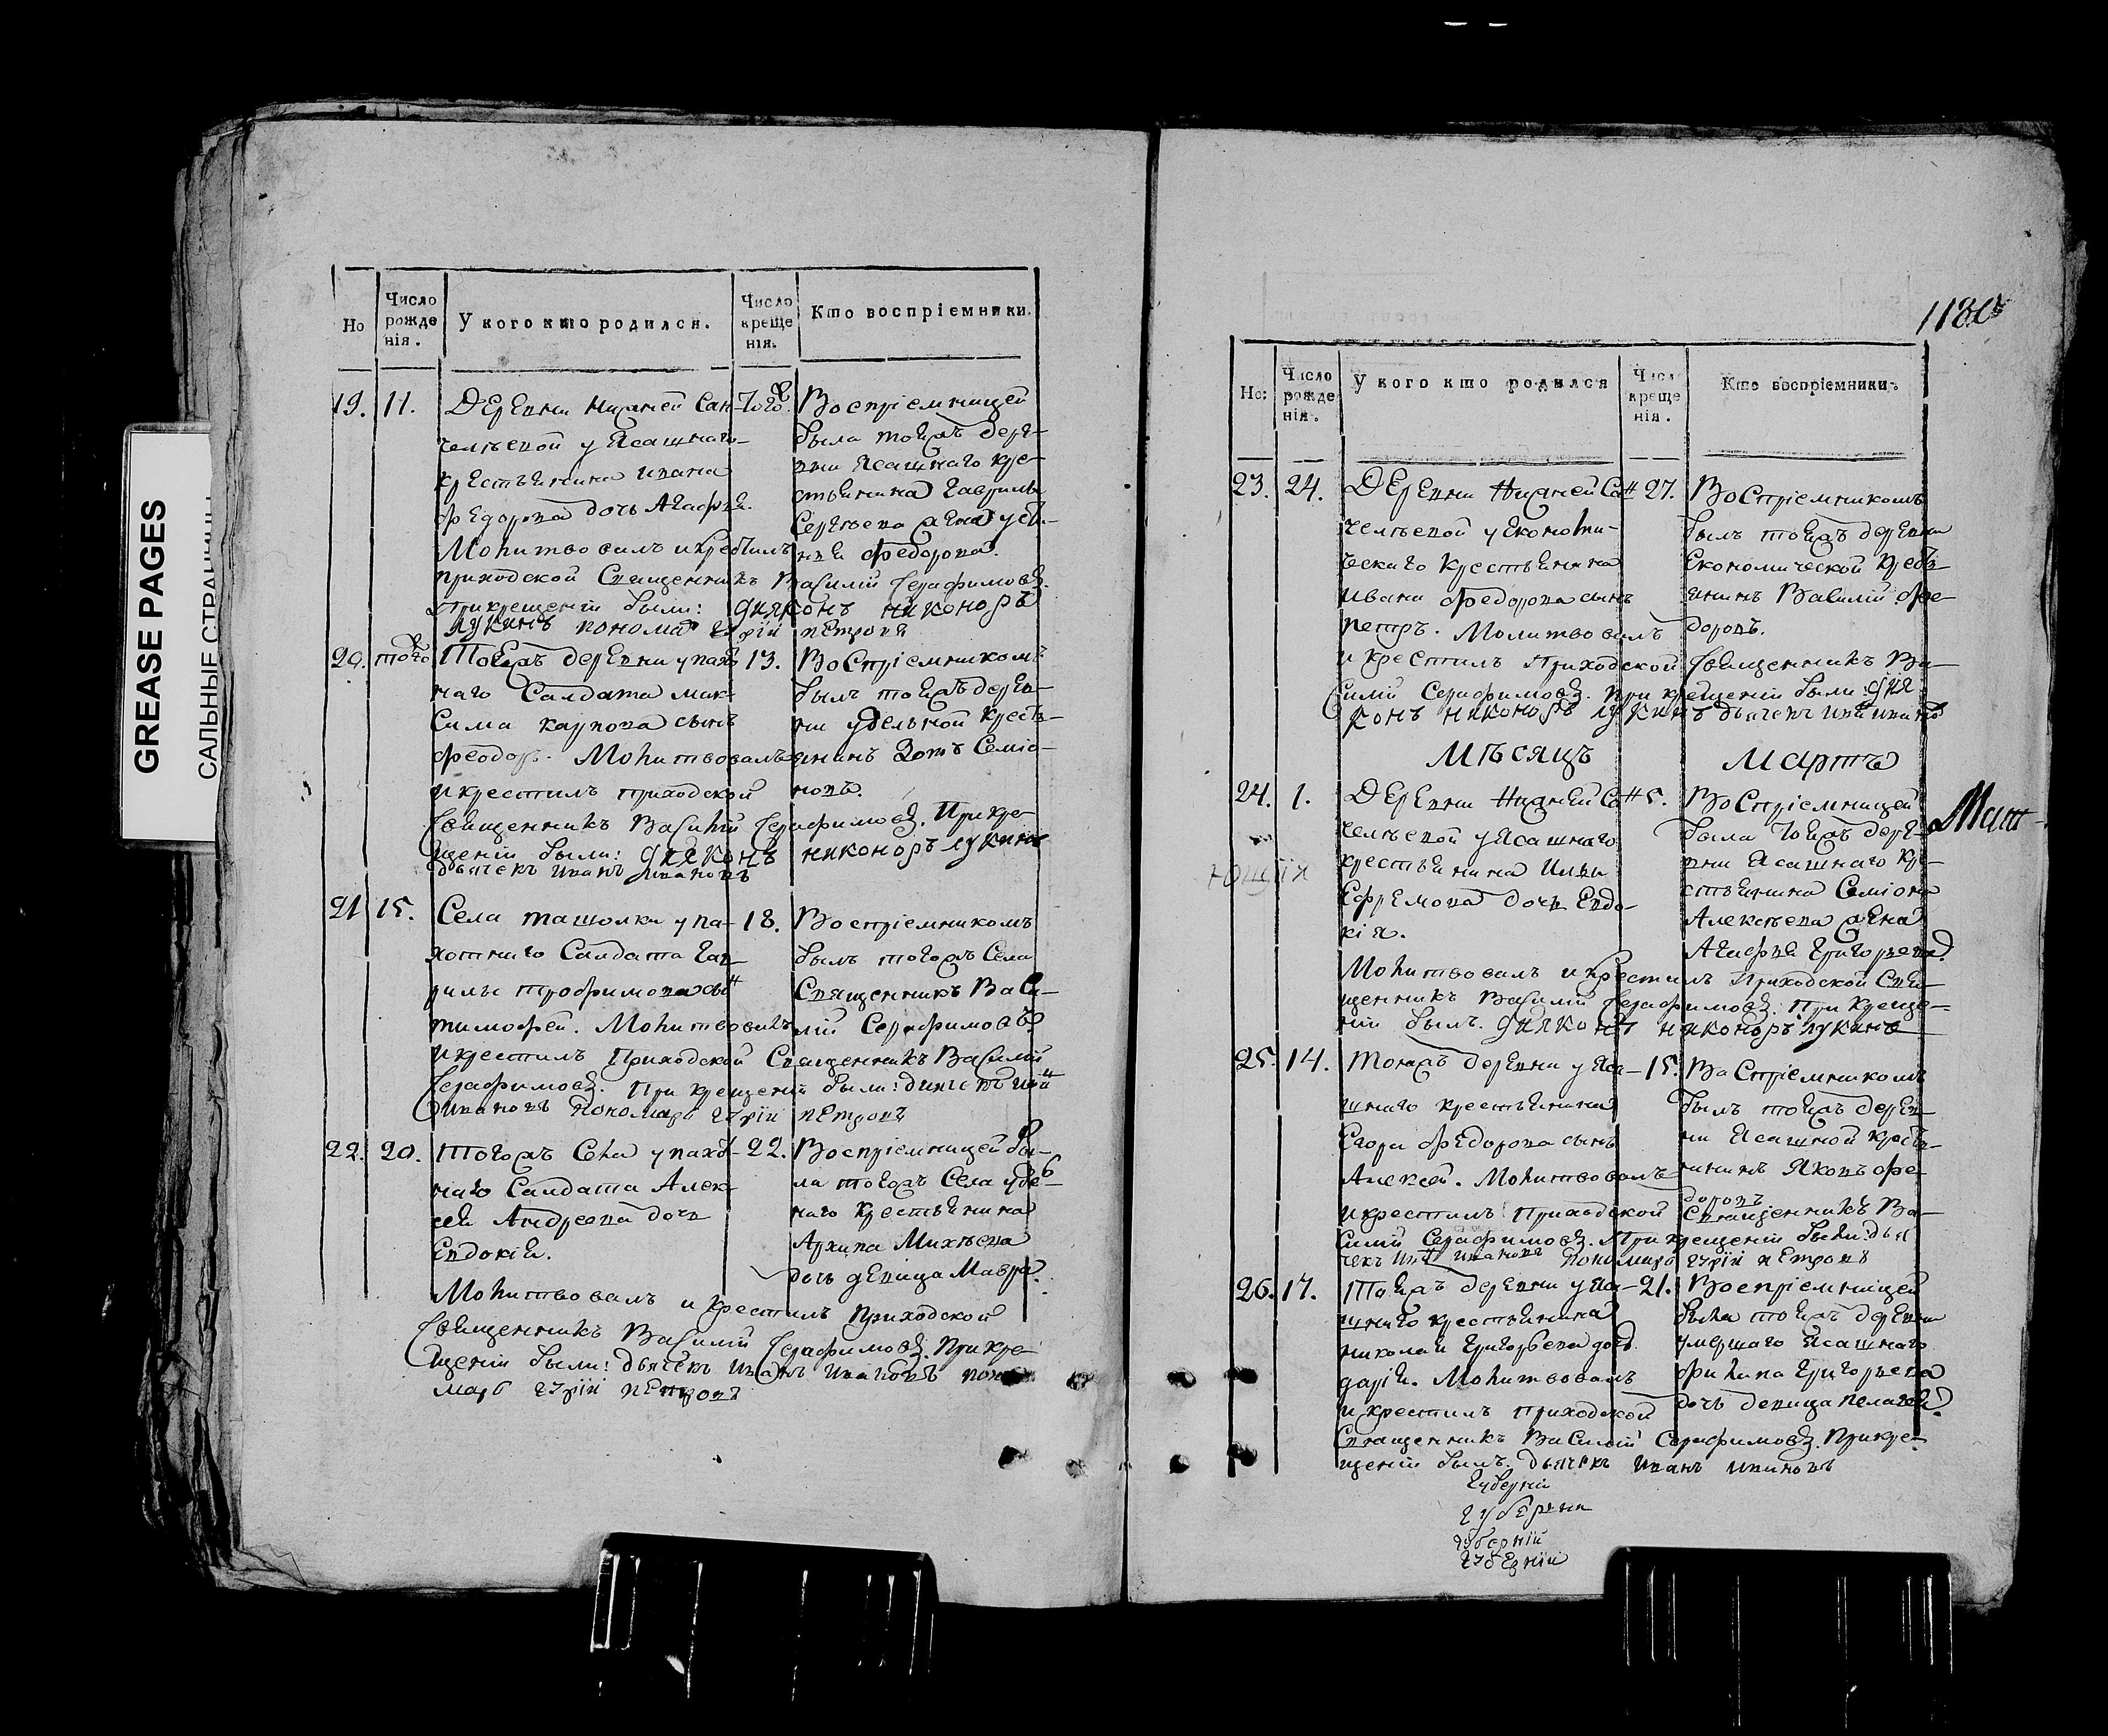 GREASE PAGES
САЛЬНЫЕ СТРАНИЦЫ
Но
Число рожде нія.
У кого кто родился.
Число креще нія.
Кто воспріемники.
19. 11.
Деревни нижней Сан-
челѣевой у Ясашнаго
крестьянина ивана
федорова дочь Агафія.
Молитвовалъ и крестилъ
приходской Священникъ Василій Серафимовъ.
При крещеніи были: діяконъ никоноръ
лукинъ пономарь гурій петровъ
того
Воспріемницей
была тоежъ дере-
вни Ясашнаго кре-
стьянина Гаврилы
Сергѣева жена усти-
нія федорова.
20. того
Тоежъ деревни у пахо
наго Салдата мак-
сима карпова сынъ
феодоръ. Молитвовалъ
и крестилъ приходской
Священникъ Василій Серафимовъ. При кре-
щеніи были: діяконъ никоноръ лукинъ
дьячекъ иванъ ивановъ
13.
Воспріемникомъ
былъ тоежъ дерев-
ни удельной кресть-
янинъ Зотъ Семіо-
новъ.
21 15.
Села ташолки у па-
хотнаго Салдата Гав-
рилы трофимова сынъ
тимофей. Молитвовалъ
и крестилъ Приходской Священникъ Василій
Серафимовъ. При крещеніи были: дьячекъ иванъ
ивановъ пономарь гурій петровъ
18.
Воспріемникомъ
былъ тогожъ Села
Священникъ Васи-
лій Серафимовъ
22. 20.
Тогожъ Села у пахо-
наго Салдата Алек-
сея Андреева дочь
Евдокія.
Молитвовалъ и крестилъ приходской
Священникъ Василій Серафимовъ. При кре-
щеніи были: дьячекъ иванъ ивановъ поно
марь гурій петровъ
22.
Воспріемницей бы-
ла тогожъ Села удель-
наго крестьянина
Архипа Михѣева
дочь девица Мавра.
1180
Но:
Число рожде нія.
У кого кто родился
Число креще нія.
Кто воспріемники
23. 24.
Деревни Нижней Сан
челѣевой у Економи-
ческаго крестьянина
ивана федорова сынъ
петръ. Молитвовалъ
и крестилъ Приходской Священникъ Ва-
силій Серафимовъ. При крещеніи были: дія
конъ никоноръ лукинъ дьячекъ иванъ ивановъ
27.
Воспріемникомъ
былъ тоежъ деревни
Економической кресть-
янинъ Василій фе-
доровъ.
Мѣсяцъ Мартъ
24. 1.
Деревни Нижней Сан
челѣевой у Ясашнаго
крестьянина Ильи
Ефремова дочь Евдо-
кія.
Молитвовалъ и крестилъ Приходской Свя-
щенникъ Василій Серафимовъ. При креще-
ніи былъ. діяконъ никоноръ лукинъ
5.
Воспріемницей
была тоежъ дере-
вни Ясашнаго кре-
стьянина Семіона
Алексѣева жена
Агафія Григорьева.
25. 14.
Тоежъ деревни у Яса-
шнаго крестьянина
Егора федорова сынъ
Алексей. Молитвовалъ
и крестилъ Приходской Священникъ Ва-
силій Серафимовъ. При крещеніи были: дья
чекъ иванъ ивановъ пономарь гурій петровъ
15.
Воспріемникомъ
былъ тоежъ дерев-
ни Ясашной кресть-
янинъ Яковъ фе-
доровъ
26. 17.
Тоежъ деревни у Яса-
шнаго крестьянина
николая Григорьева дочь
дарія. Молитвовалъ
и крестилъ приходской
Священникъ Василій Серафимовъ. При кре-
щеніи былъ. дьячекъ иванъ ивановъ
21.
Воспріемницей
была тоежъ деревни
умершаго Ясашнаго
филипа Григорьева
дочь девица пелагея.
Губерніи
губерніи
губерній
губерніи